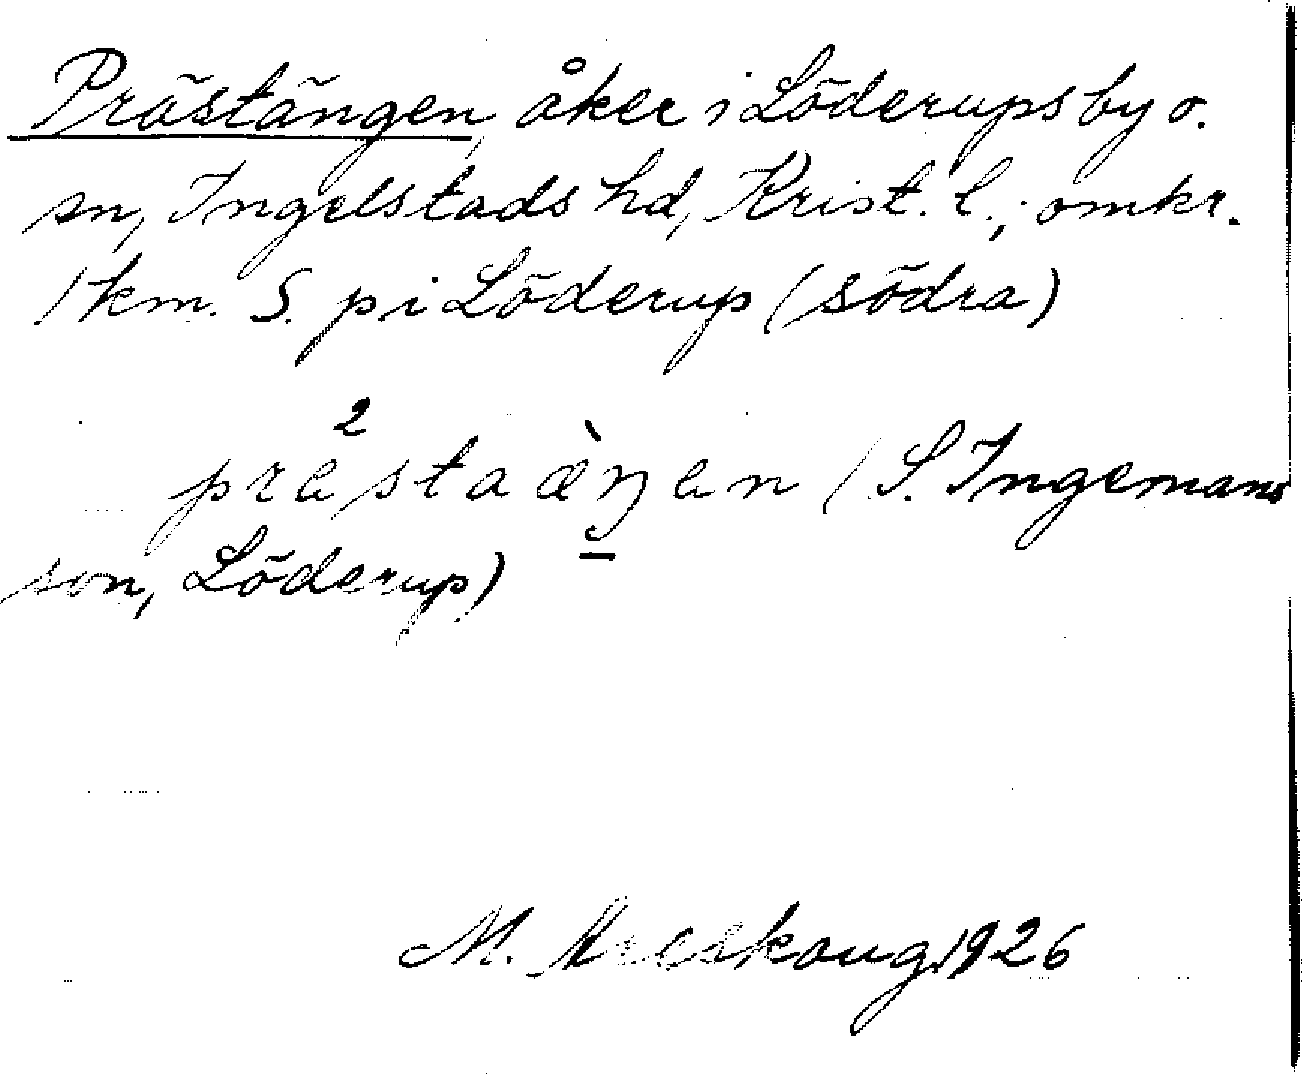 Prästängen, åker i Löderups by o.
sn, Ingelstads hd, Krist. l.; omkr.
1 km. S. p i Löderup (södra)
pre²staæ̀ŋen (S. Ingemans
son, Löderup)
M. Areskoug 1926